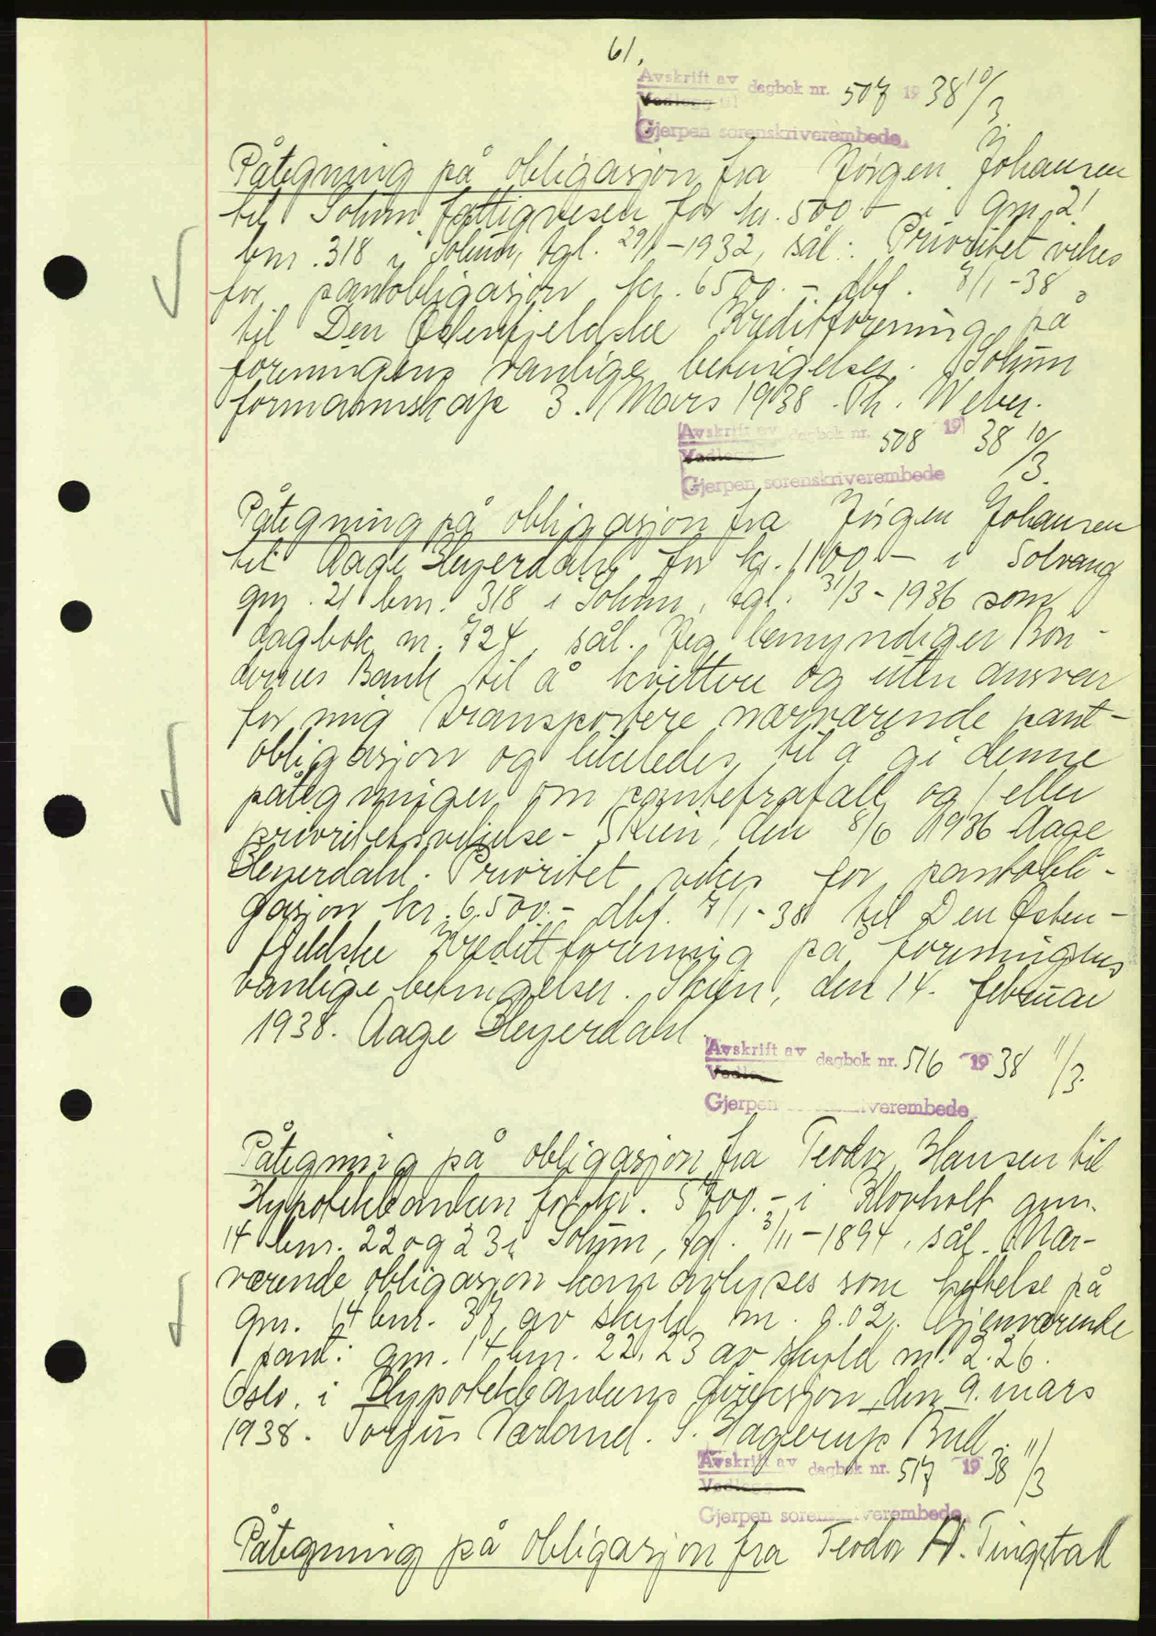 61.
Avskrift av dagbok nr. 507 1938 10/3.
Vedlegg til
Gjerpen sorenskriverembede.
Påtegning på obligasjon fra Jörgen Johansen
til Solum fattigvesen for kr. 500.- i gnr. 21
bnr. 318 i Solum, tgl. 29/1-1932, sål.: Prioritet vikes
for pantobligasjon kr. 6500.- dbf. 7/1-38
til Den Östenfjeldske Kreditforening på
foreningens vanlige betingelser. Solum
formannskap 3. Mars 1938. Th. Weber.
Avskrift av dagbok nr. 508 1938 10/3.
Gjerpen sorenskriverembede
Påtegning på obligasjon fra Jörgen Johansen
til Aage Heyerdahl for kr. 1100.- i Solvang
gnr. 21 bnr. 318 i Solum, tgl. 31/3-1936 som
dagbok nr. 724, sål. Jeg bemyndiger Bön-
dernes Bank til å kvittere og uten ansvar
for mig transportere nærværende pant-
obligasjon og likeledes til å gi denne
påtegninger om pantefrafall og/eller
prioritetsvikelse - Skien, den 8/6 1936 Aage
Heyerdahl. Prioritet vikes for pantobli-
gasjon kr. 6.500.- dbf. 7/1-38 til Den Östen-
fjeldske Kredittforening på foreningens
vanlige betingelser. Skien, den 14. februar
1938. Aage Heyerdahl
Avskrift av dagbok nr. 516 1938 11/3.
Gjerpen verembede.
Påtegning på obligasjon fra Teodor Hansen til
Hypotekbanken for kr. 5700.- i Klovholt gnr.
14 bnr. 22 og 23 i Solum, tgl. 3/11-1894, sål. Nær-
værende obligasjon kan avlyses som heftelse på
gnr. 14 bnr. 37 av skyld m. 0.02. Gjenværende
pant: gnr. 14 bnr. 22, 23 av skyld m. 2.26.
Oslo, i Hypotekbankens direksjon den 9. mars
1938. Torjus Værland. S. Hagerup Bull.
Avskrift av dagbok nr. 517 1938 11/3
Gjerpen soren verembede.
Påtegning på obligasjon fra Teodor A. Tingstad